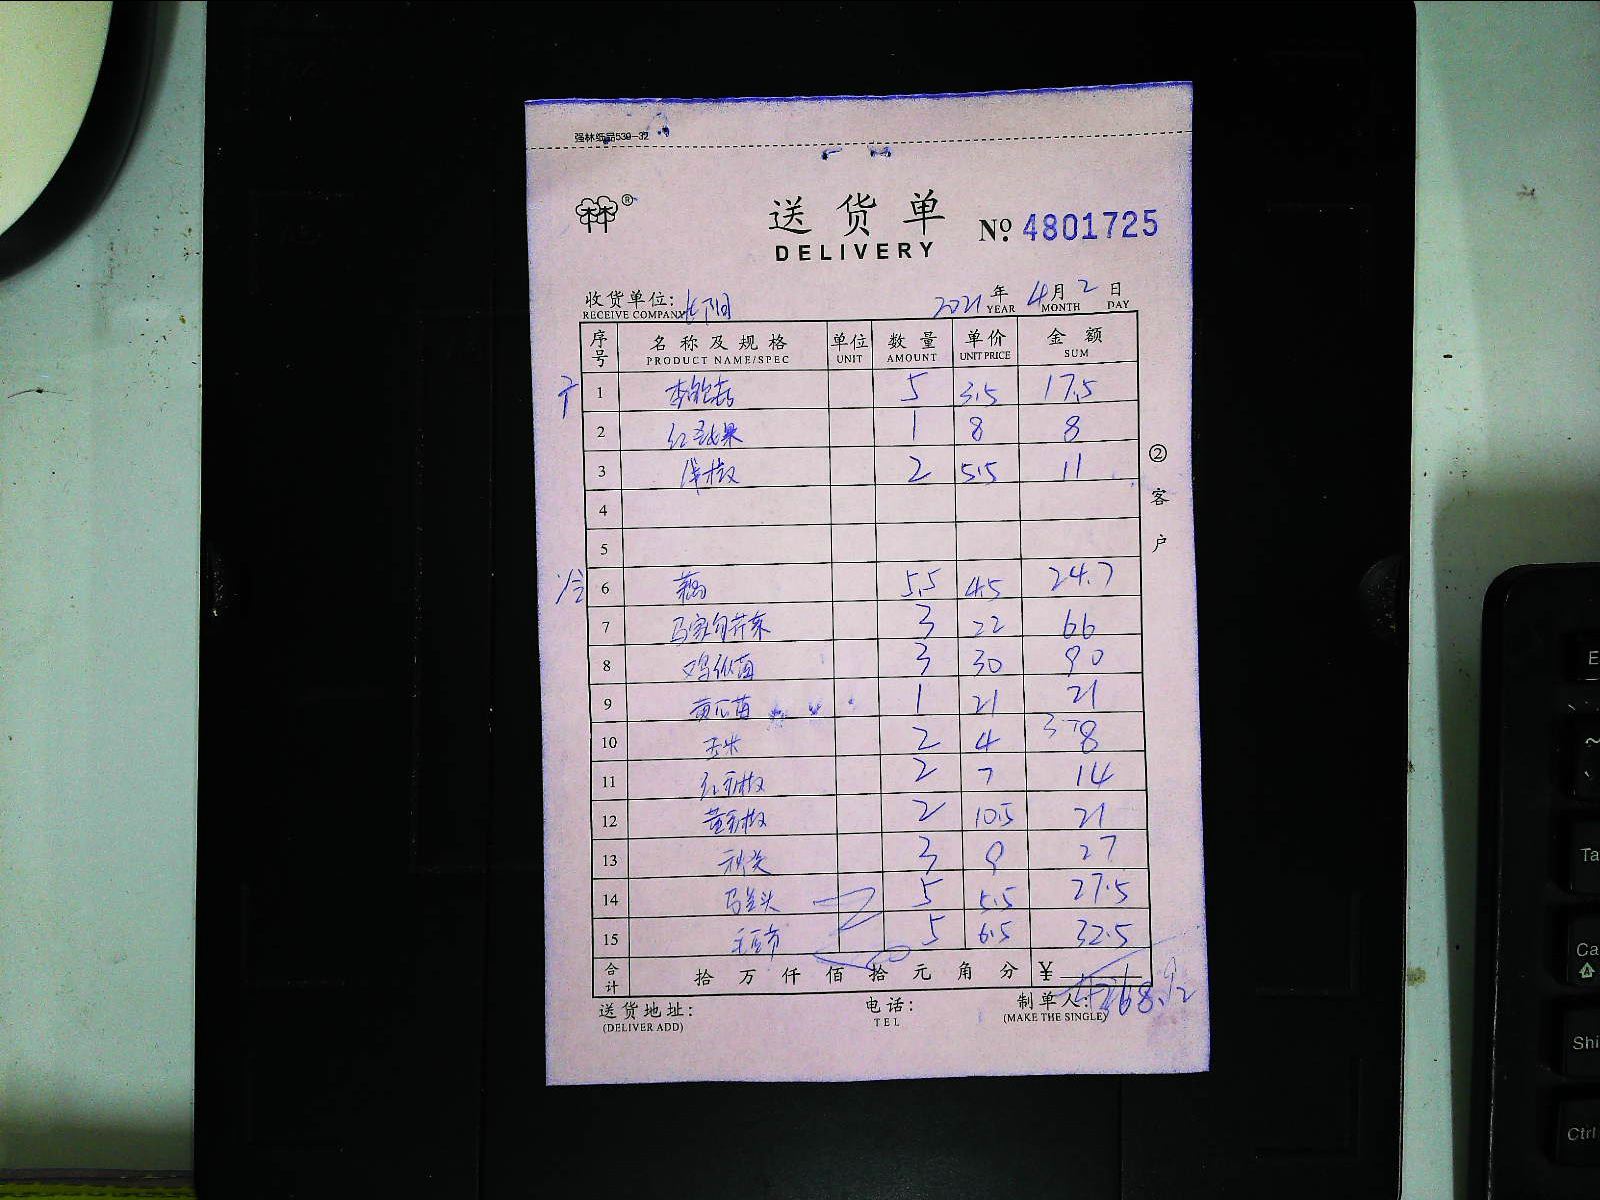 强林纸品539-32
送货单
DELIVERY
№ 4801725
收货单位:
RECEIVE COMPANY
2021年4月2日
YEAR MONTH DAY
序号 名称及规格 单位 数量 单价 金额
PRODUCT NAME/SPEC UNIT AMOUNT UNIT PRICE SUM
1 5 3.5 17.5
2 1 8 8
3 洋椒 2 5.5 11
4
5
6 藕 5.5 4.5 24.7
7 3 22 66
8 鸡枞菌 3 30 90
9 黄瓜苗 1 21 21
10 玉米 2 4 8
11 红彩椒 2 7 14
12 黄彩椒 2 10.5 21
13 秋葵 3 9 27
14 马兰头 5 5.5 27.5
15 5 6.5 32.5
合计 拾万仟佰拾元角分 ¥
送货地址: 电话: 制单人:
(DELIVER ADD) TEL (MAKE THE SINGLE)
②客户
E
Ta
Ca
Shi
Ctrl